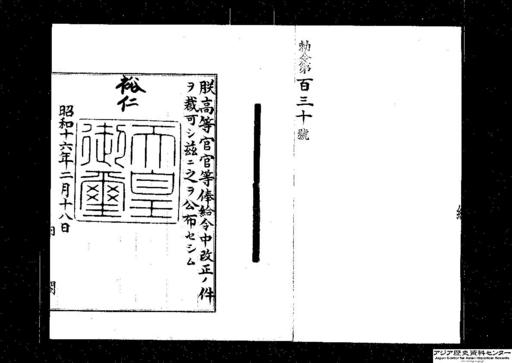 勅令第百三十號
朕高等官官等俸給令中改正ノ件
ヲ裁可シ茲ニ之ヲ公布セシム
裕仁
天皇御璽
昭和十六年二月十八日
内閣
アジア歴史資料センター
Japan Center for Asian Historical Records